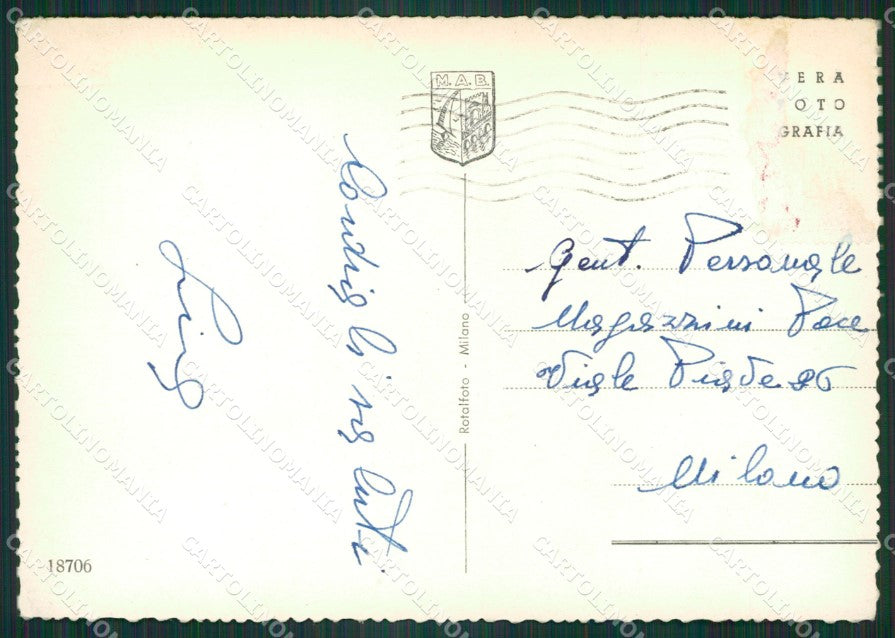 M.A.B.
VERA
FOTO
GRAFIA
Cordiali saluti
Gent. Personale
Magazzini Pace
Viale Piave 26
Milano
Rotalfoto - Milano
18706
CARTOLINOMANIA